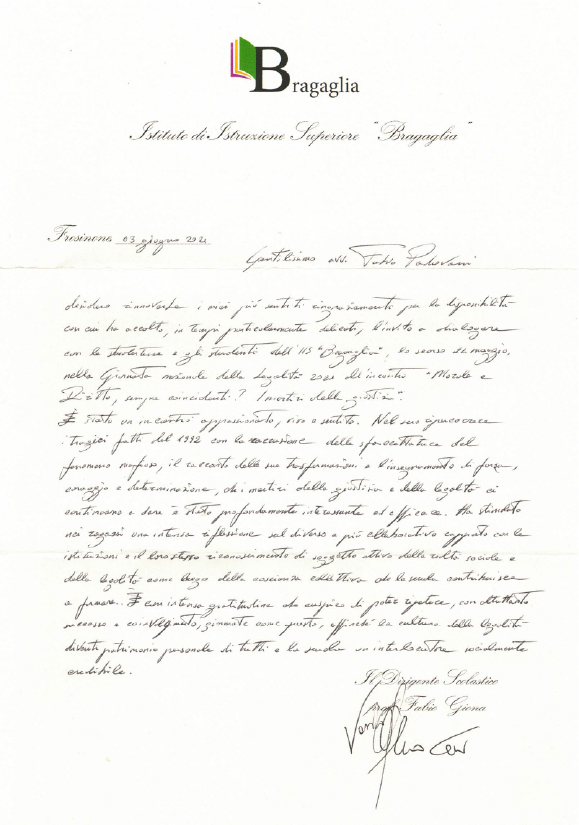 Bragaglia
Istituto di Istruzione Superiore "Bragaglia"
Frosinone 03 giugno 2021
Gentilissimo avv. Fabio Padovani
desidero rinnovarLe i miei più sentiti ringraziamenti per la disponibilità
con cui ha accolto, in tempi particolarmente delicati, l'invito a dialogare
con le studentesse e gli studenti dell'IIS "Bragaglia", lo scorso maggio,
nella Giornata nazionale della Legalità 2021 all'incontro "Morale e
Diritto, sempre coincidenti? I martiri della giustizia".
È stato un incontro appassionato, vivo e sentito. Nel suo
i tragici fatti del 1992 con la delle sfaccettature del
fenomeno mafioso, il racconto delle sue trasformazioni e l'insegnamento di forza,
coraggio e determinazione, che i martiri della giustizia e della legalità ci
continuano a dare è stato profondamente interessante ed efficace. Ha stimolato
nei ragazzi una intensa riflessione sul diverso e più collaborativo rapporto con le
istituzioni e il loro stesso riconoscimento di soggetto attivo della realtà sociale e
della legalità come luogo della coscienza collettiva che la scuola contribuisce
a formare. È con intensa gratitudine che auspico di poter ripetere, con altrettanto
successo e coinvolgimento, giornate come questa, affinché la cultura della legalità
diventi patrimonio personale di tutti e la scuola un interlocutore socialmente
credibile.
Il Dirigente Scolastico
prof. Fabio Giona